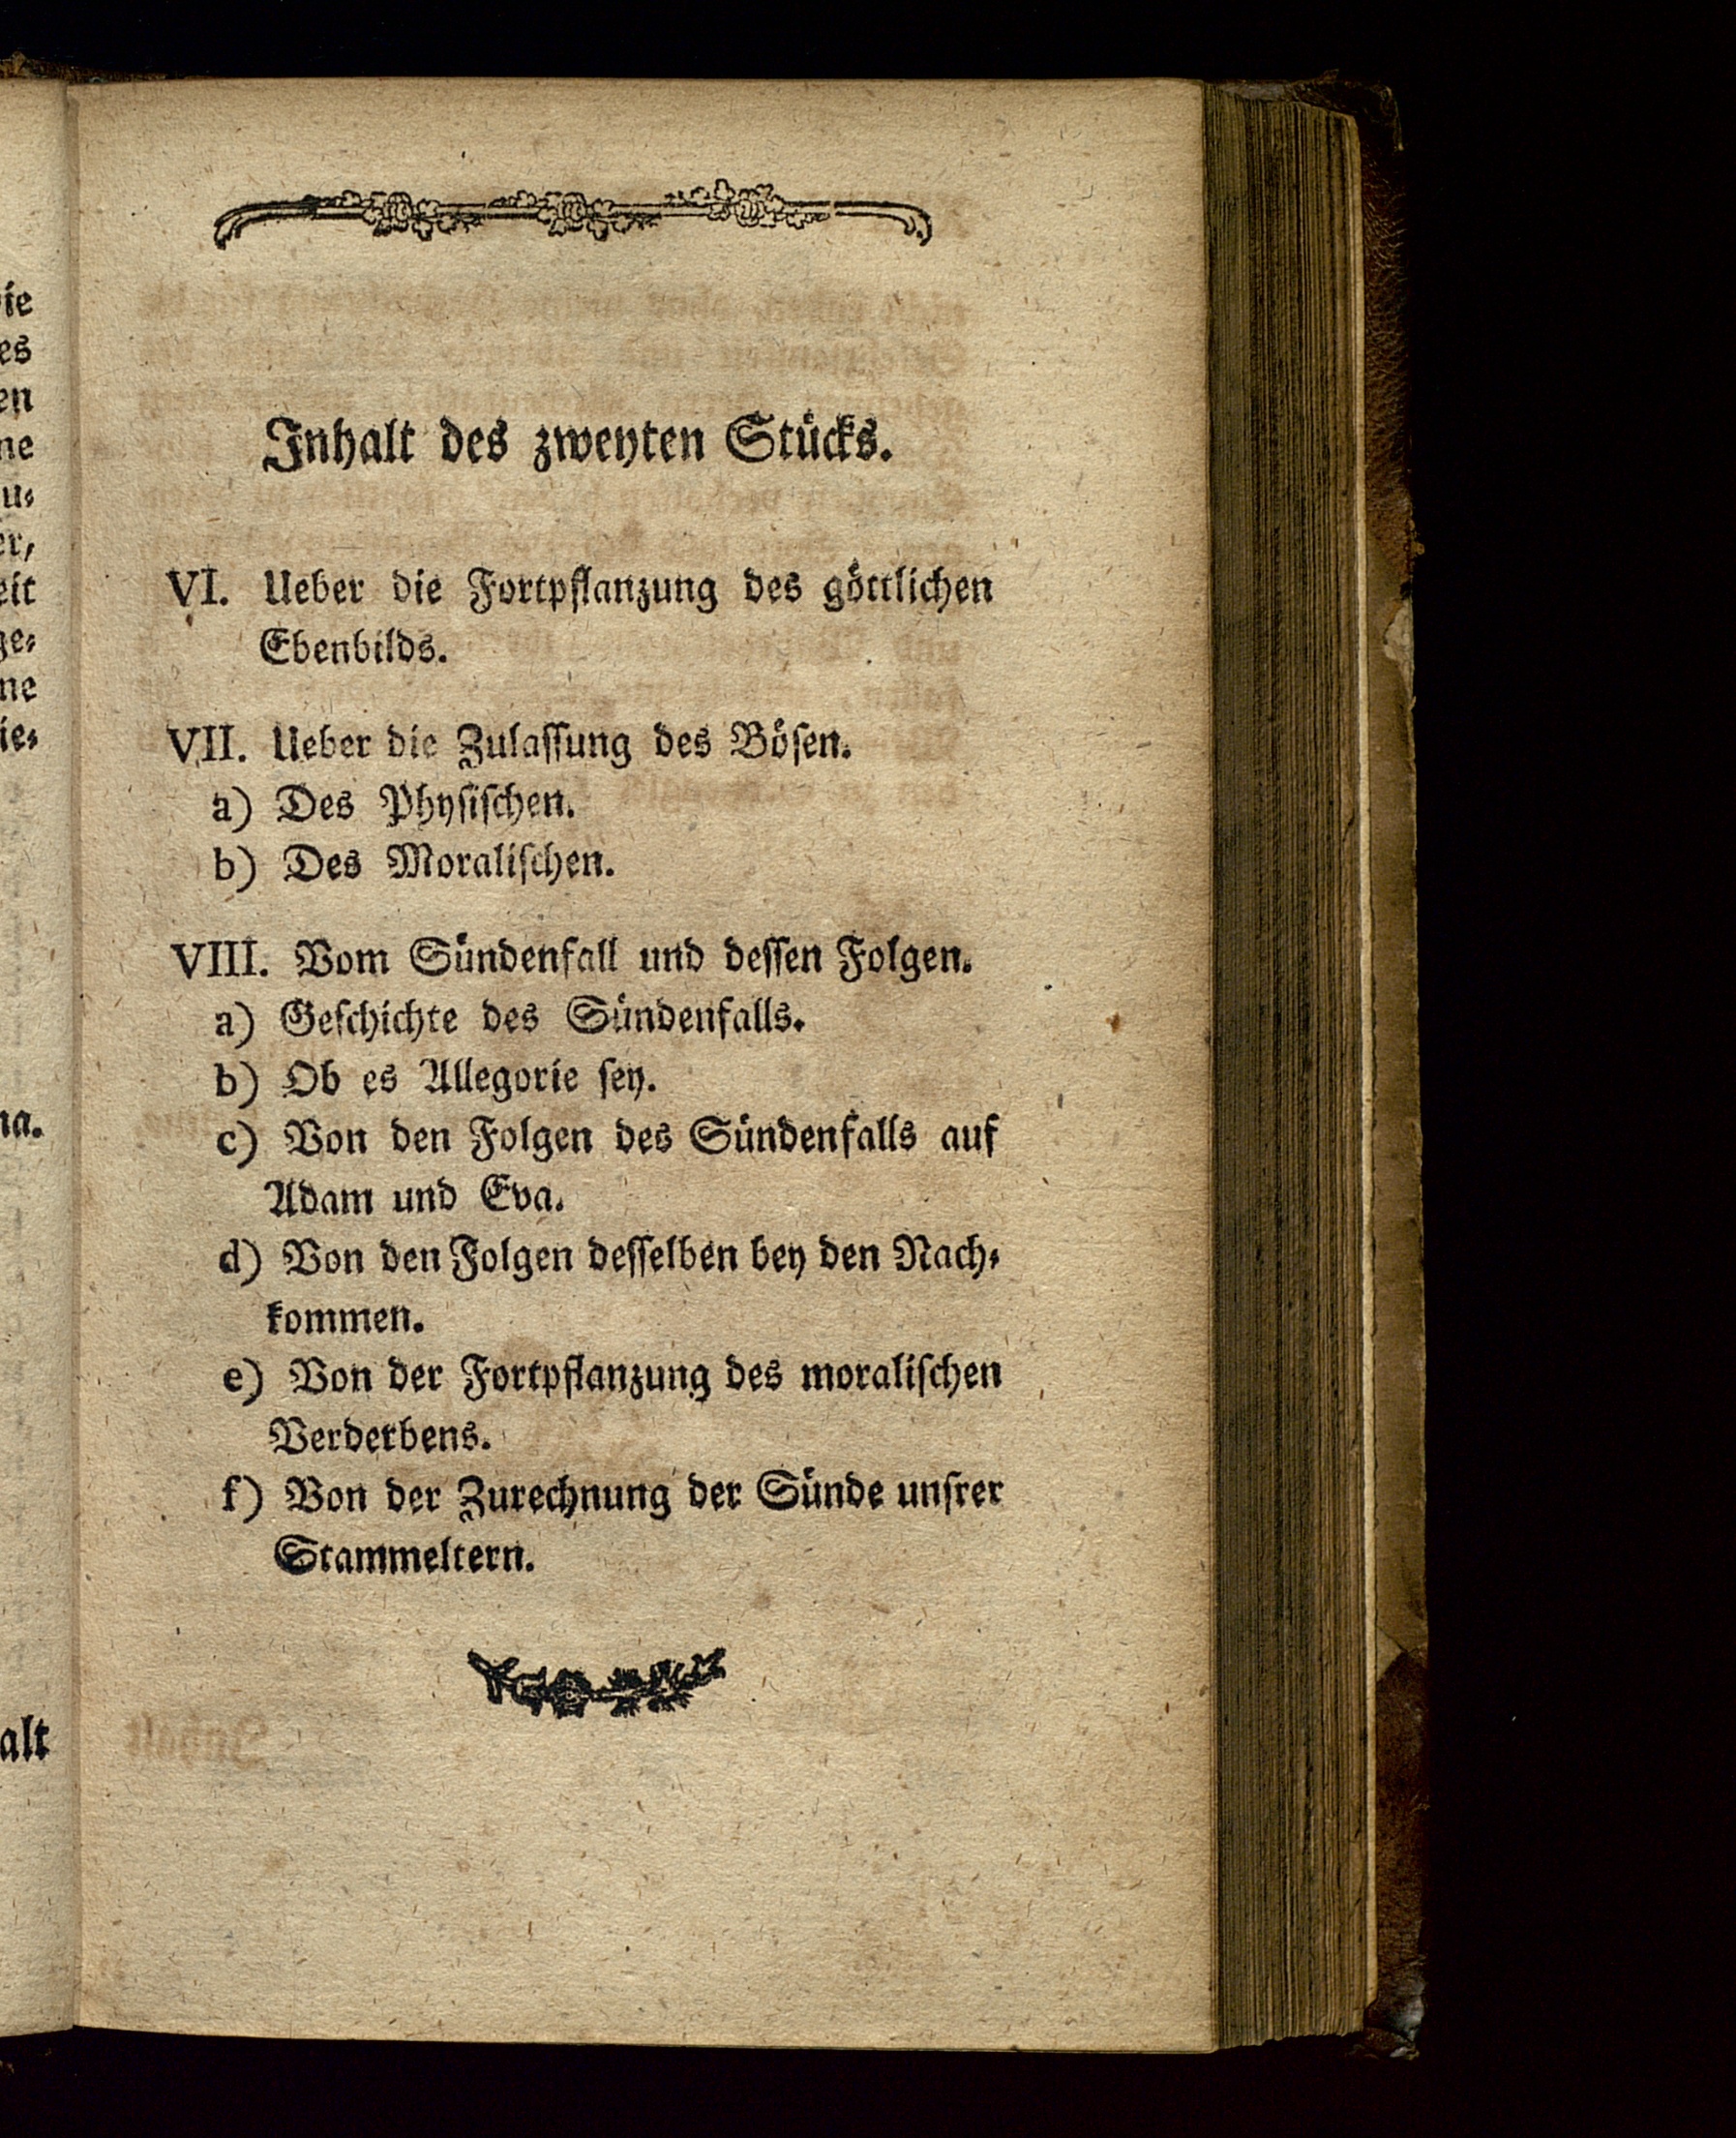 Inhalt des zweyten Stücks.
VI. Ueber die Fortpflanzung des göttlichen
Ebenbilds.
VII. Ueber die Zulaſſung des Böſen.
a) Des Phyſiſchen.
b) Des Moraliſchen.
VIII. Vom Sündenfall und deſſen Folgen.
a) Geſchichte des Sündenfalls.
b) Ob es Allegorie ſey.
c) Von den Folgen des Sündenfalls auf
Adam und Eva.
d) Von den Folgen deſſelben bey den Nach⸗
kommen.
e) Von der Fortpflanzung des moraliſchen
Verderbens.
f) Von der Zurechnung der Sünde unſrer
Stammeltern.